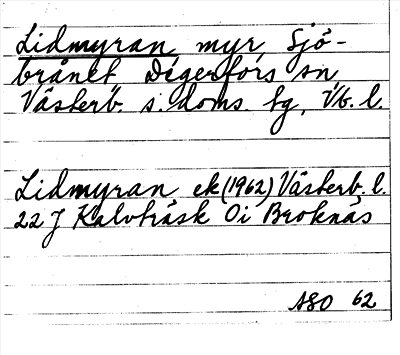 Lidmyran, myr, Sjö-
brånet Degerfors sn,
Västerb. s. doms tg, Vb. l.
Lidmyran ek (1962) Västerb. l.
22 J Kalvträsk Oi Broknäs
ASO 62